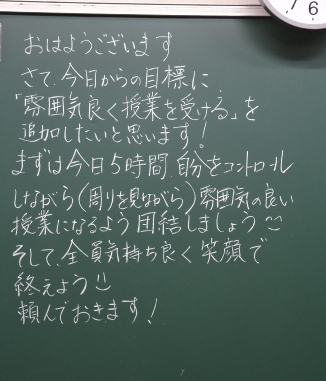 おはようございます
さて、今日からの目標に
「雰囲気良く授業を受ける」を
追加したいと思います!
まずは今日5時間、自分をコントロール
しながら(周りを見ながら)雰囲気の良い
授業になるよう団結しましょう
そして、全員気持ち良く笑顔で
終えよう
頼んでおきます!
6